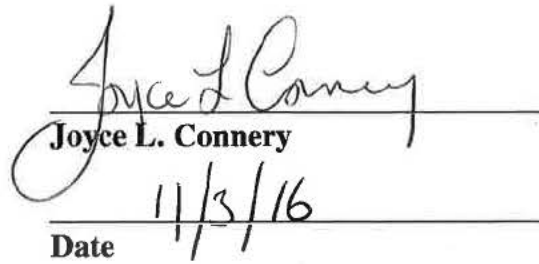 Joyce L Connery
Joyce L. Connery
11/3/16
Date